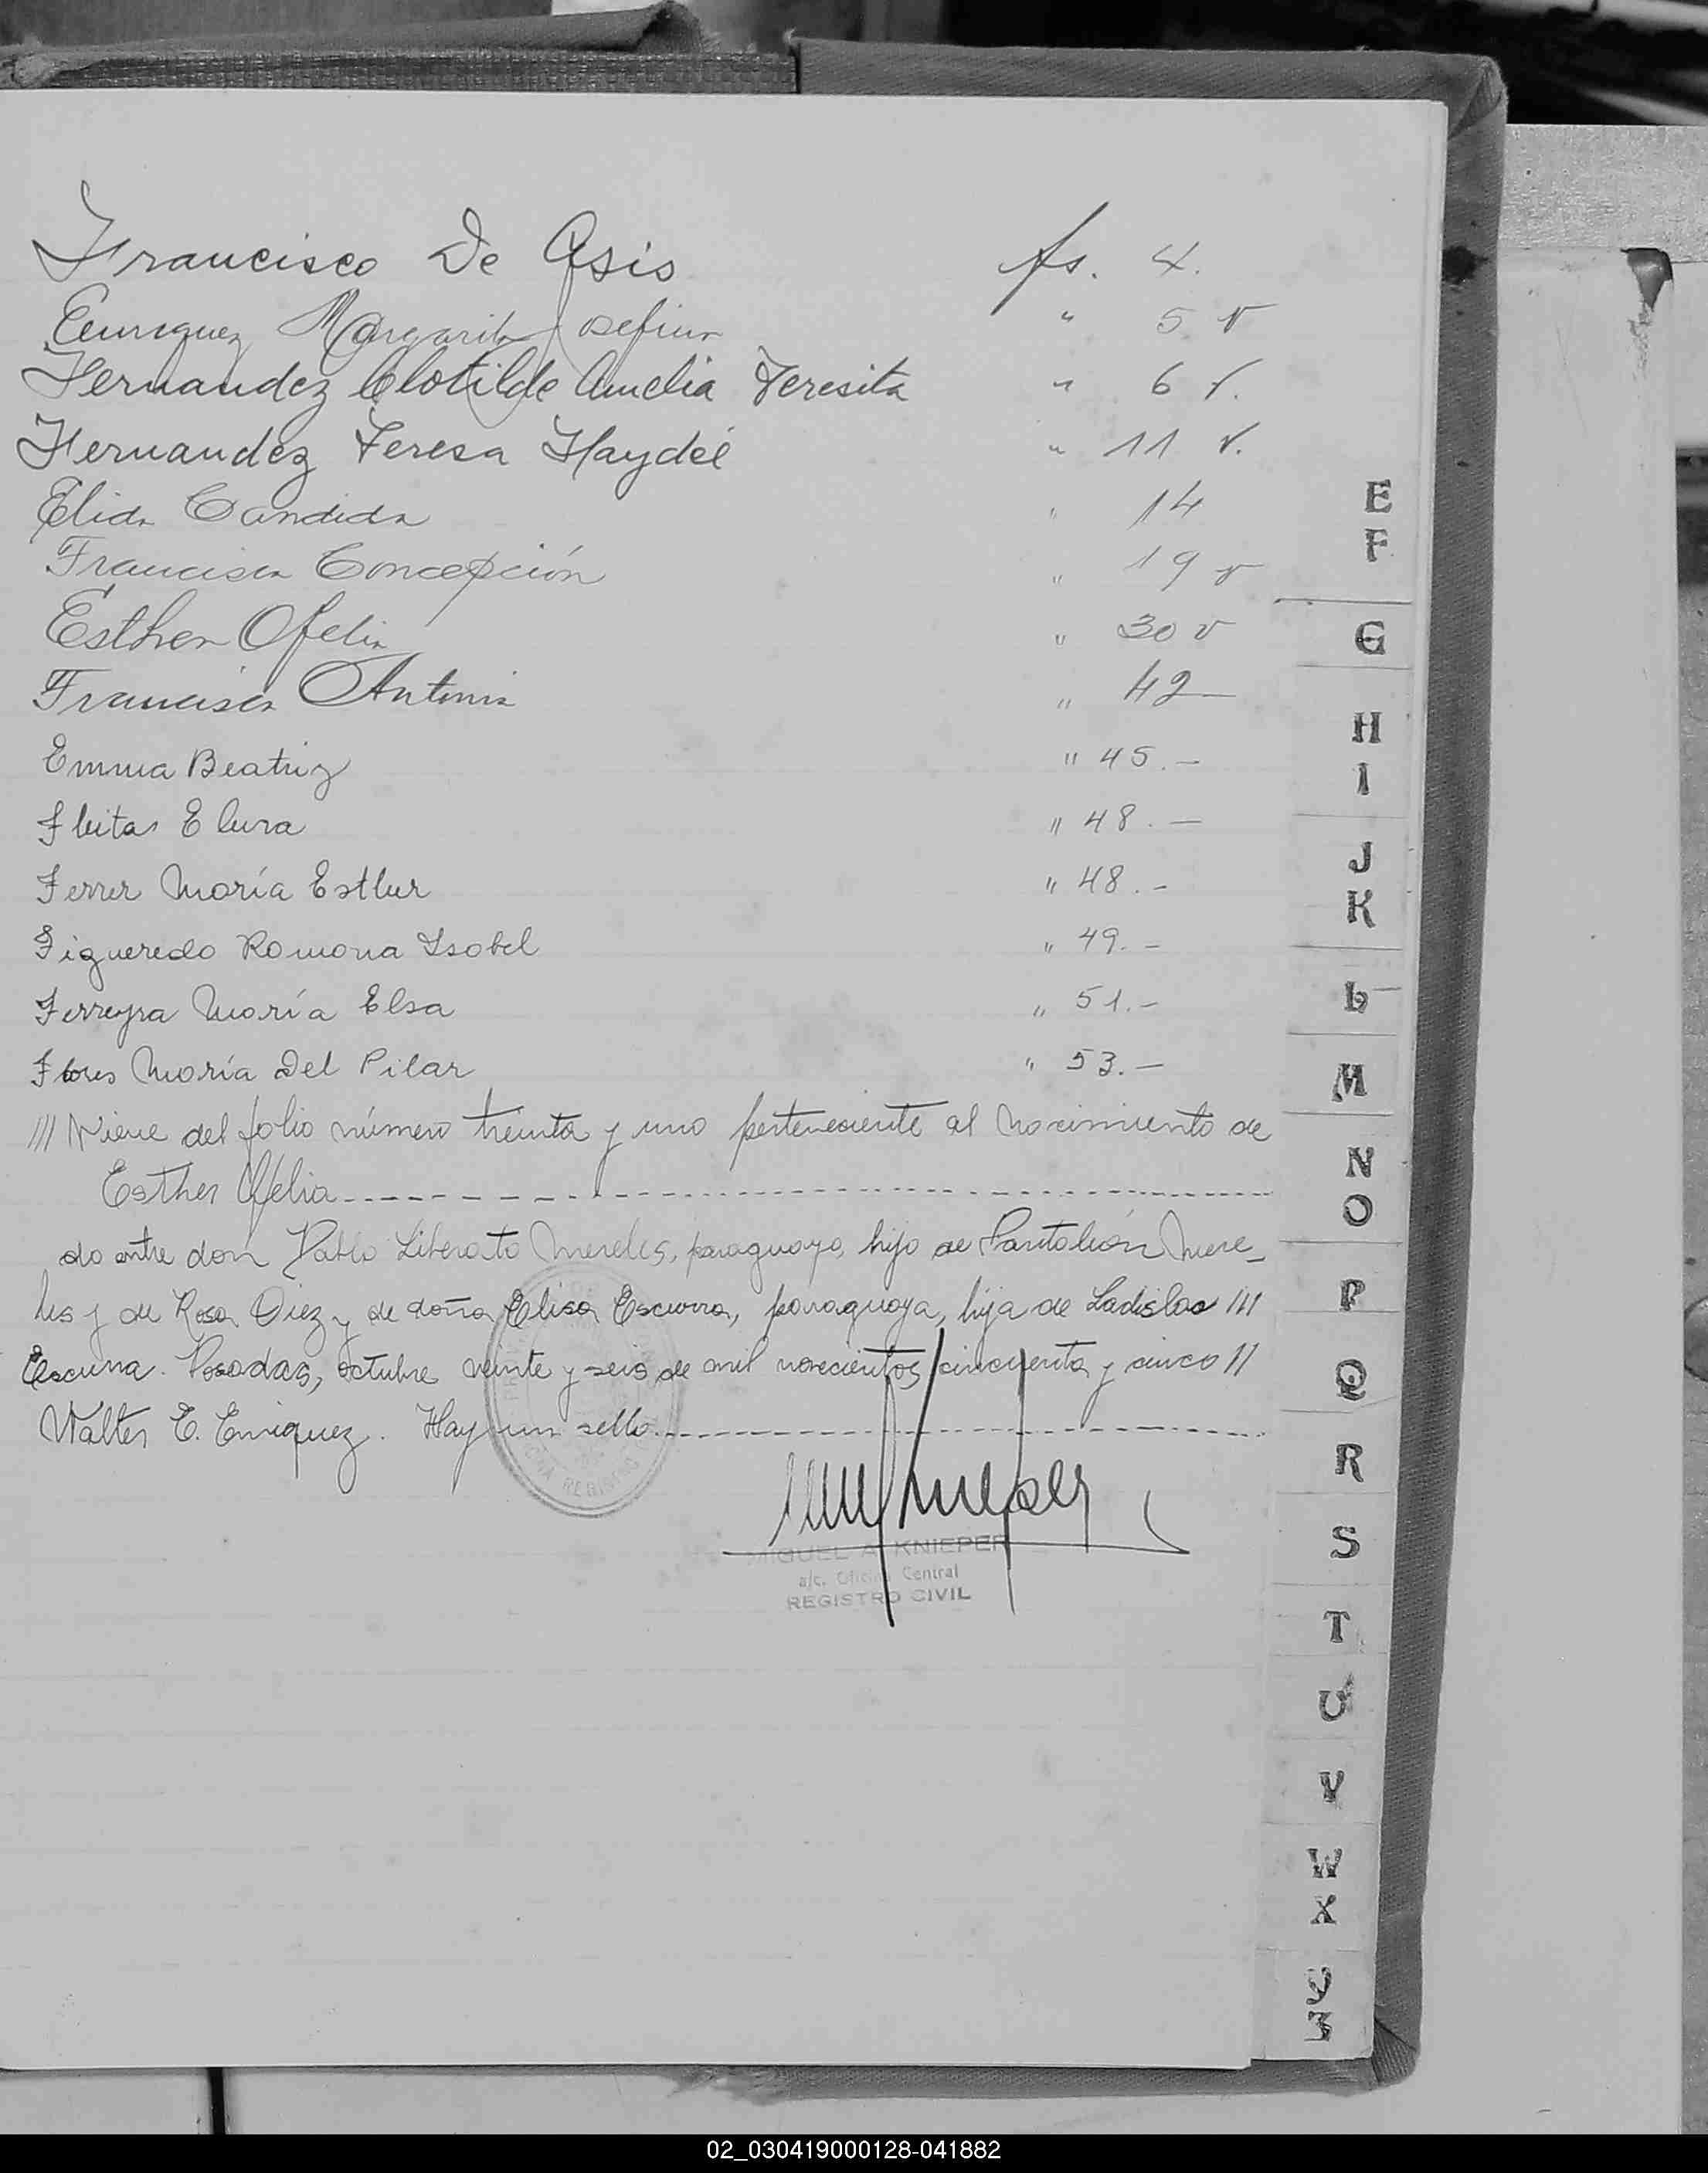 Francisco De Asis fs. 4.
Enriquez Margarita Josefina " 5 v
Hernandez Clotilde Amelia Teresita " 6 v.
Hernandez Teresa Haydeé " 11 v.
Elida Candida " 14
Francisca Concepción " 19 v
Esther Ofelia " 30 v
Francisca Antonia " 42 —
Emma Beatriz " 45.—
Fleitas Elena " 48.—
Ferrer María Esther " 48.—
Figueredo Ramona Isabel " 49.—
Ferreyra María Elsa " 51.—
Flores María Del Pilar " 53.—
/// Viene del folio número treinta y uno perteneciente al nacimiento de
Esther Ofelia
do entre don Pablo Liberato Mereles, paraguayo, hijo de Pantaleón Mere-
les y de Rosa Diez y de doña Elisa Escurra, paraguaya, hija de Ladislao ///
Escurra. Posadas, octubre veinte y seis de mil novecientos cincuenta y cinco //
Walter E. Enriquez. Hay un sello.
REGISTRO
MIGUEL A. KNIEPER
a/c. Oficina Central
REGISTRO CIVIL
E
F
G
H
I
J
K
L
M
N
O
P
Q
R
S
T
U
V
W
X
Y
Z
02_030419000128-041882